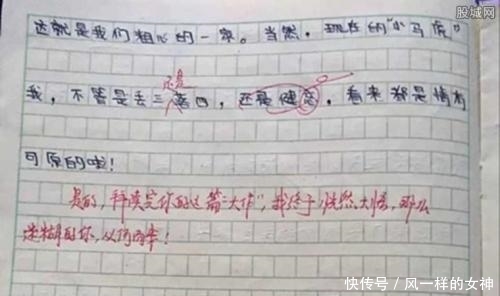 股城网
这就是我们粗心的一家。当然，现在的“小马虎”
还是
我，不管是丢三落四，还是健忘，看来都是情有
可原的啦！
是的，拜读完你的这篇“大作”，我终于恍然大悟，那么
迷糊的你，从何而来！
快传号／风一样的女神